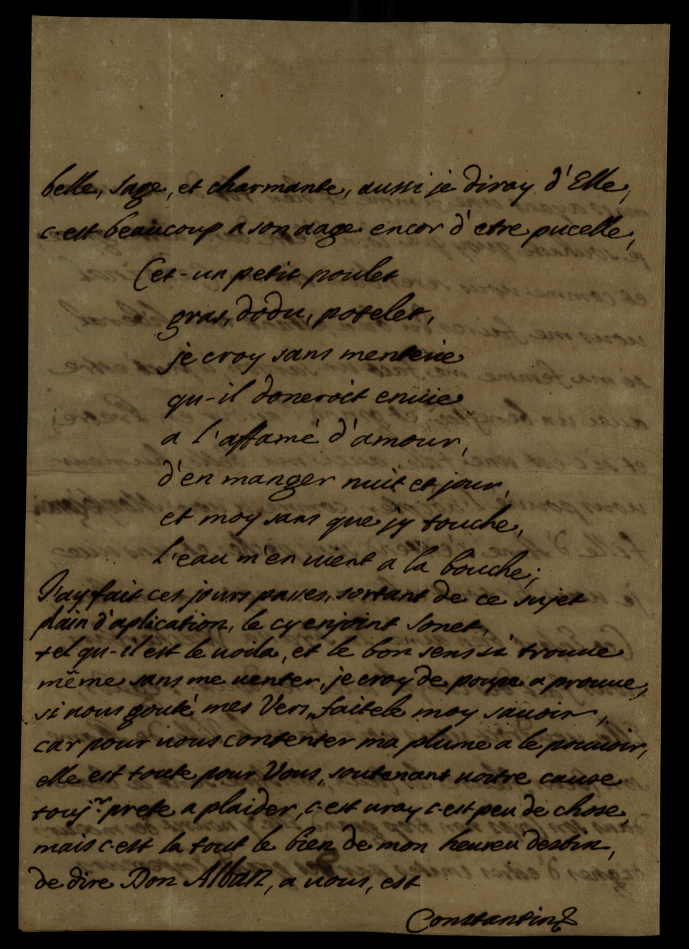 belle, sage, et charmante, aussi je diray d'Elle,
c-est beaucoup a son aage encor d'etre pucelle,
Cet-un petit poulet
gras, dodu, potelet,
je croy sans menterie
qu-il doneroit envie
a l'affamé d'amour,
d'en manger nuit et jour,
et moy sans que jy touche,
l'eau m'en vient a la bouche;
J'ay fait ces jours passes, sortant de ce sujet
plain d'aplication, le cy enjoint sonet,
tel qu-il est le voila, et le bon sens si trouve
même sans me venter, je croy de poupe a prouve,
si vous gouté mes Vers, faitele moy savoir,
car pour vous contenter ma plume a le pouvoir,
elle est toute pour Vous, soutenant vostre cause
toujr. prete a plaider, c-est vray c-est peu de chose
mais c-est la tout le bien de mon heureu destin,
de dire Don Alban, a vous, est
Constantin